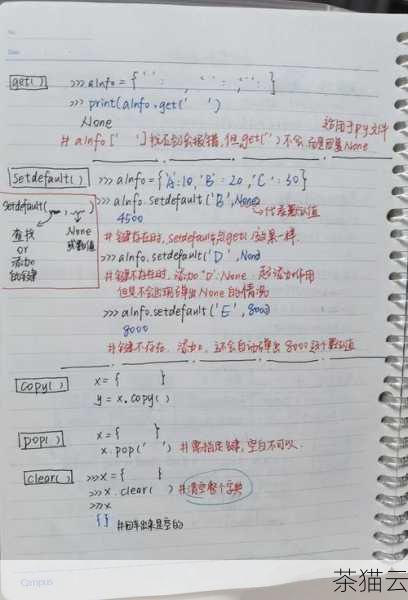 No.
Date
get() >>> aInfo = {' ' : , ' ' : ' ' : }
>>> print(aInfo.get(' ')
None
适用于py文件
# aInfo[' ']找不到会报错,但get(' ')不会,
None
setdefault() >>> aInfo = {'A':10, 'B'=20, 'C':30}
>>> aInfo.setdefault('B', None)
4500
代表默认值
setdefault( , )
查找 None
or 或数值
添加
的键
# 键存在时, setdefault与get()效果一样.
>>> aInfo.setdefault('D', Non)
# 键不存在时. 添加"D": None. 起添加作用
但是不会出现弹出None的情况
>>> aInfo.setdefault('E', 8000
8000
# 键不存在. 添加 还会自动弹出8000这个默认值
copy() x = { }
y = x.copy()
pop() x = { }
x.pop(' ') # 需指定键, 空白不可以.
clear() >>> x = { }
>>> x.clear( ) # 清空整个字典
>>> x
{} #回车出来是空的
Campus
茶猫云